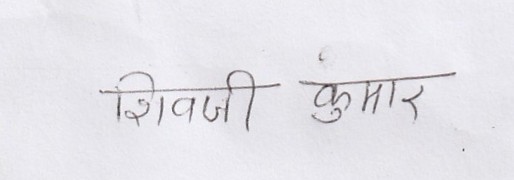 शिवजी कुमार